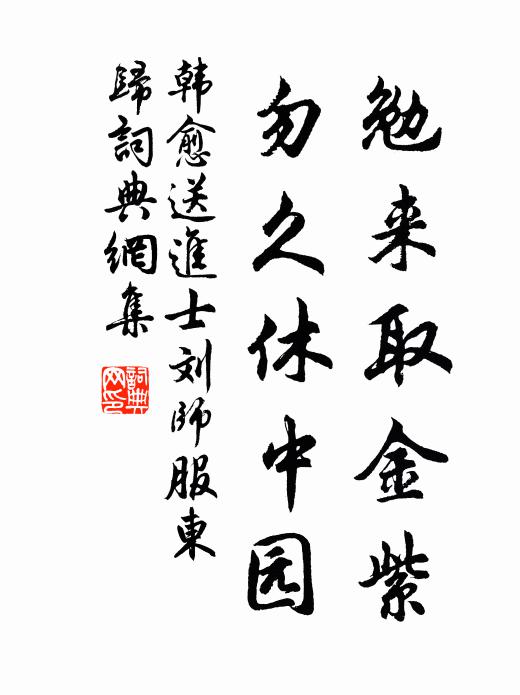 勉来取金紫
勿久休中园
韩愈送進士刘師服東
歸詞典網集
詞典
网印